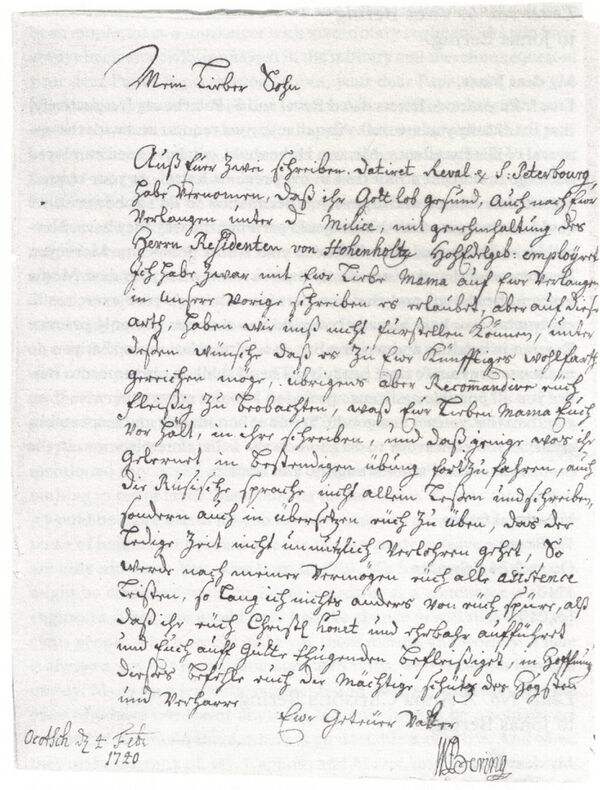 Mein Lieber Sohn
Auß Eurer Zwen schreiben. Datiret Reval & S. Peterbourg,
habe Vernommen, daß ihr Gott lob gesund, Auch nach Eur
Verlangen unter d. Milice, mit genehmhaltung des
Herrn Residenten von Hohenholtz employret
Ich habe Zwar mit Eur Lieber Mama auf Eur Verlangen
in unsere Vorige schreiben es erlaubet, aber auf diese
arth, haben wir unß nicht fürstellen Können, unter
deßen wünsche daß es zu Eur Künfftiges wollfarth
gereichen möge, übrigens aber Recomandire euch
fleißig zu beobachten, waß Eur Lieben Mama Euch
Vorhält, in ihre schreiben, und daß genige was ihr
Gelernet, in bestendigen übung fortzufahren, auch
die Rusische sprache nicht allein Leßen und schreiben,
sondern auch in übersetzen euch zu üben, das der
Ledige Zeit nicht unnützlich Verlohren gehet, So
werde nach meiner Vermögen euch alle assistence
Leisten, so lang ich nichts anders von euch spüre, alß
daß ihr euch Christl. und ehrbahr aufführet
und Euch auff Gutte thugenden befleißiget, in Hoffnung
dieses befehle euch die Mächtige schütz des Högsten
und Verharre
Eur Getreuer Vatter
Ocotsch d 4 Feb:
1740
WJBering